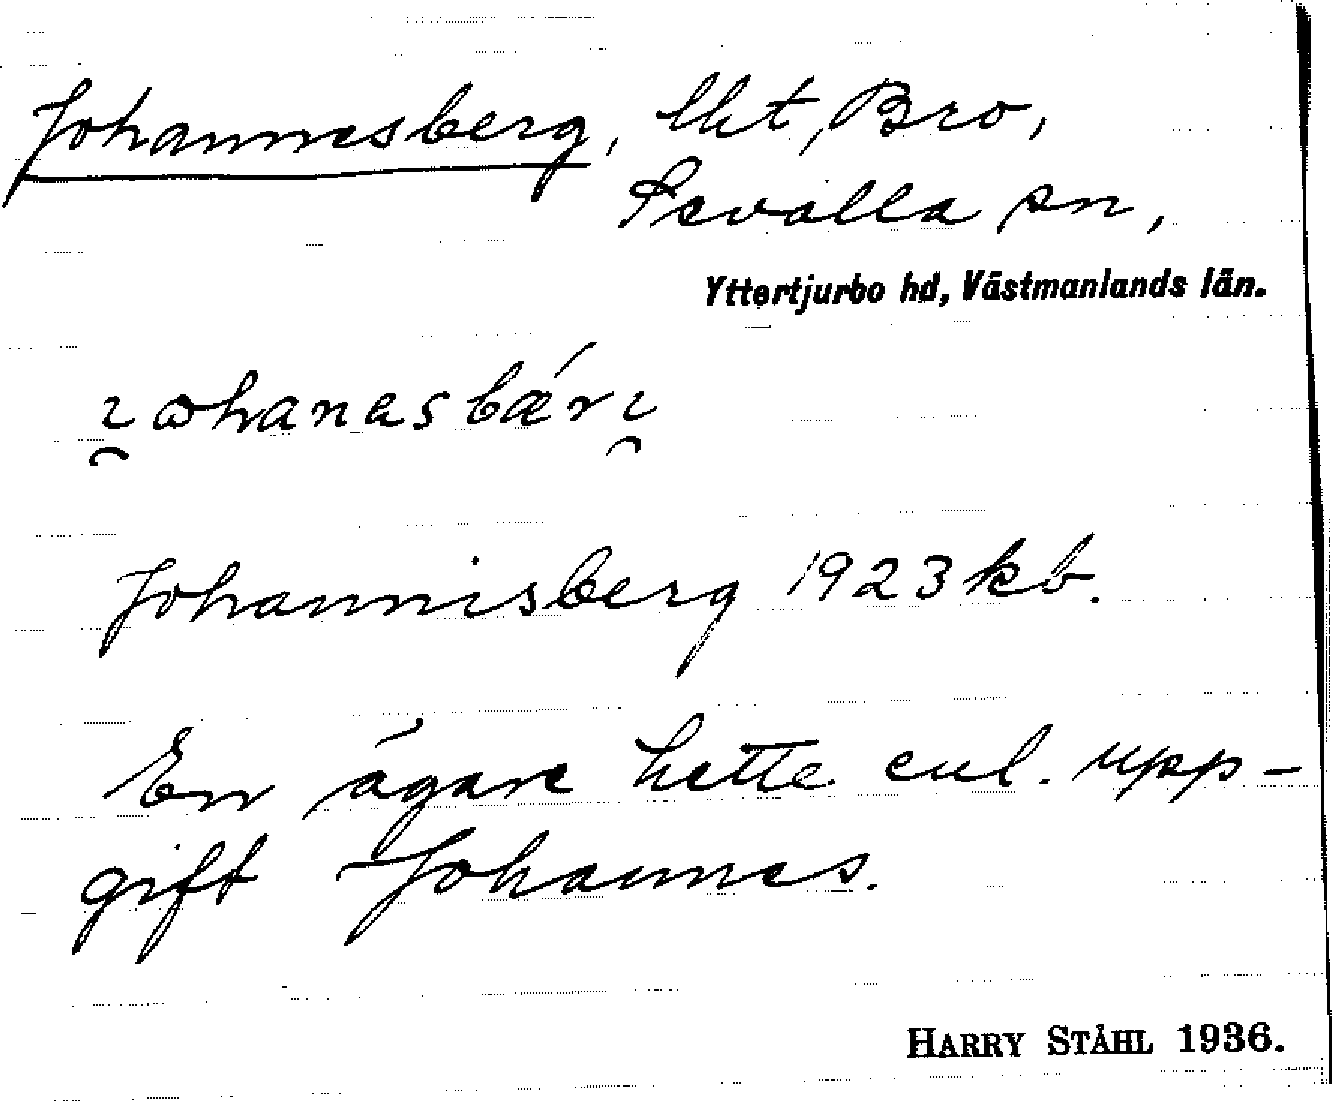 Johannesberg, lht, Bro,
Sevalla sn,
Yttertjurbo hd, Västmanlands län.
Johannisberg 1923 kb.
En ägare hette enl. upp-
gift Johannes.
HARRY STÅHL 1936.